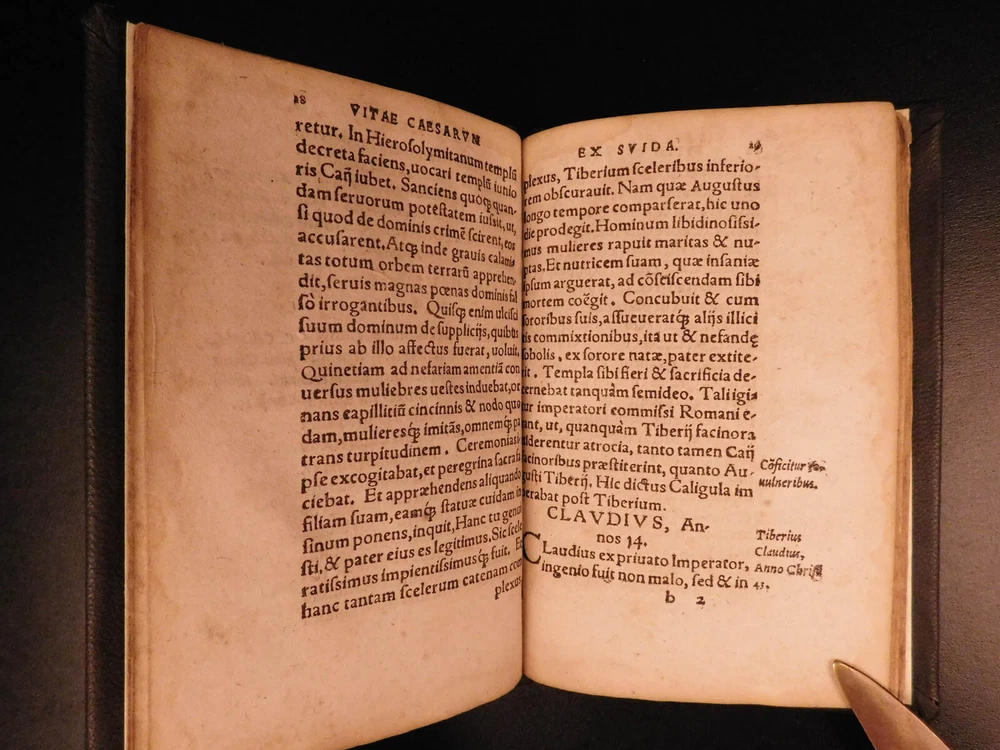 28 VITAE CAESARVM
retur. In Hierosolymitanum templũ
decreta faciens, uocari templũ iunio
ris Caij iubet. Sanciens quóq; quan-
dam seruorum potestatem iussit, ut,
si quod de dominis crimẽ scirent, eos
accusarent. Atq; inde grauis calami
tas totum orbem terrarũ apprehen-
dit, seruis magnas pœnas dominis fal
sò irrogantibus. Quisq; enim ulcisci
suum dominum de supplicijs, quibus
prius ab illo affectus fuerat, uoluit.
Quinetiam ad nefariam amentiã con
uersus muliebres uestes induebat, or
nans capillitiũ cincinnis & nodo quo
dam, mulieresq; imitãs, omnemq; pa
trans turpitudinem. Ceremonias i-
pse excogitabat, et peregrina sacra fa
ciebat. Et appræhendens aliquando
filiam suam, eamq; statuæ cuidam in
sinum ponens, inquit, Hanc tu genui
sti, & pater eius es legitimus. Sic scele
ratissimus impientissimusq; fuit. Et
hanc tantam scelerum catenam com
plexus,
EX SVIDA. 29
plexus, Tiberium sceleribus inferio-
rem obscurauit. Nam quæ Augustus
longo tempore comparserat, hic uno
die prodegit. Hominum libidinosissi-
mus mulieres rapuit maritas & nu-
ptas. Et nutricem suam, quæ insaniæ
ipsum arguerat, ad cõsciscendam sibi
mortem coẽgit. Concubuit & cum
sororibus suis, assueueratq; alijs illici
tis commixtionibus, ita ut & nefandę
sobolis, ex sorore natæ, pater extite-
rit. Templa sibi fieri & sacrificia de-
cernebat tanquàm semideo. Tali igi-
tur imperatori commissi Romani e-
rant, ut, quanquàm Tiberij facinora
uiderentur atrocia, tanto tamen Caij
facinoribus præstiterint, quanto Au-
gusti Tiberij. Hic dictus Caligula im
perabat post Tiberium.
Cõficitur
uulneribus.
CLAVDIVS, An-
nos 14.
Claudius ex priuato Imperator,
ingenio fuit non malo, sed & in
Tiberius
Claudius,
Anno Christi
43.
b 2